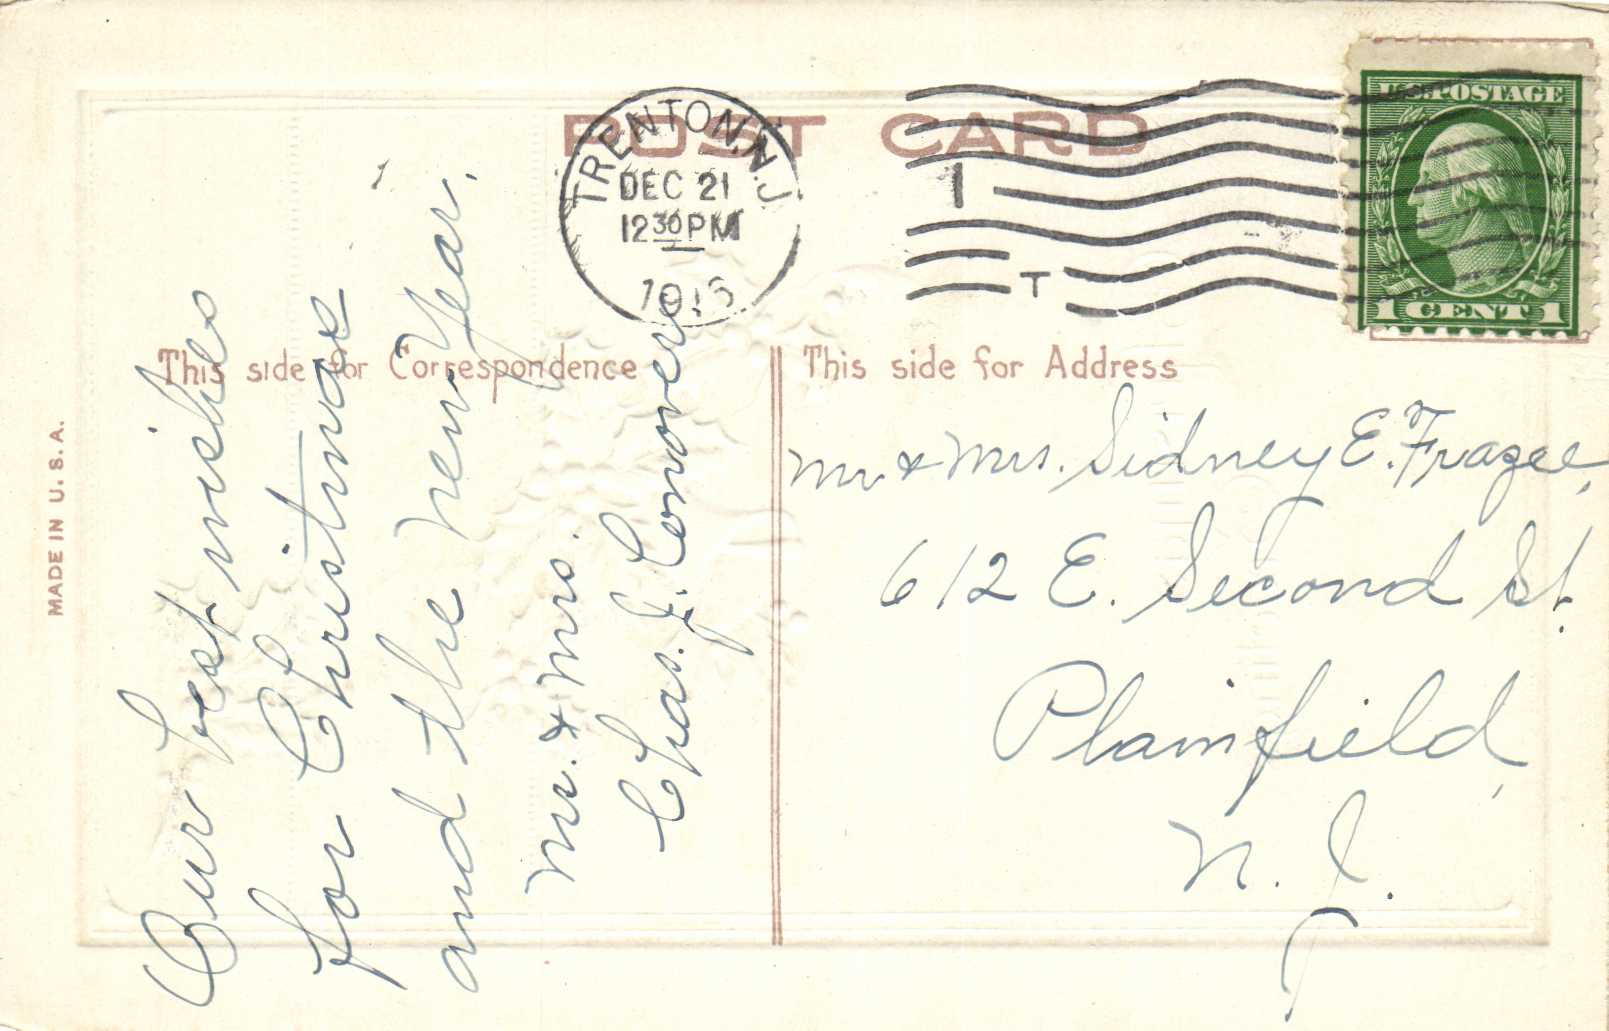 POST CARD
TRENTON, N.J.
DEC 21
12 30 PM
1
T
U.S. POSTAGE
1 CENT 1
This side for Correspondence
This side for Address
MADE IN U.S.A.
Our best wishes
for Christmas
and the New Year.
Mr. & Mrs.
Chas. J. Conover
Mr & Mrs. Sidney E. Frazee,
612 E. Second St.
Plainfield,
N. J.